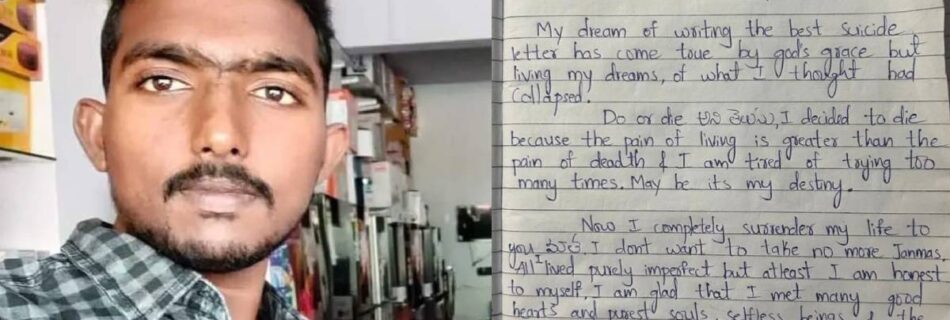 My dream of writing the best suicide
letter has come true by god's grace but
living my dreams, of what I thought had
collapsed.
Do or die, I decided to die
because the pain of living is greater than the
pain of deadth & I am tired of trying too
many times. May be its my destiny.
Now I completely surrender my life to
you I dont want to take no more Janmas,
All I lived purely imperfect but atleast I am honest
to myself, I am glad that I met many good
hearts and purest souls, selfless beings & the